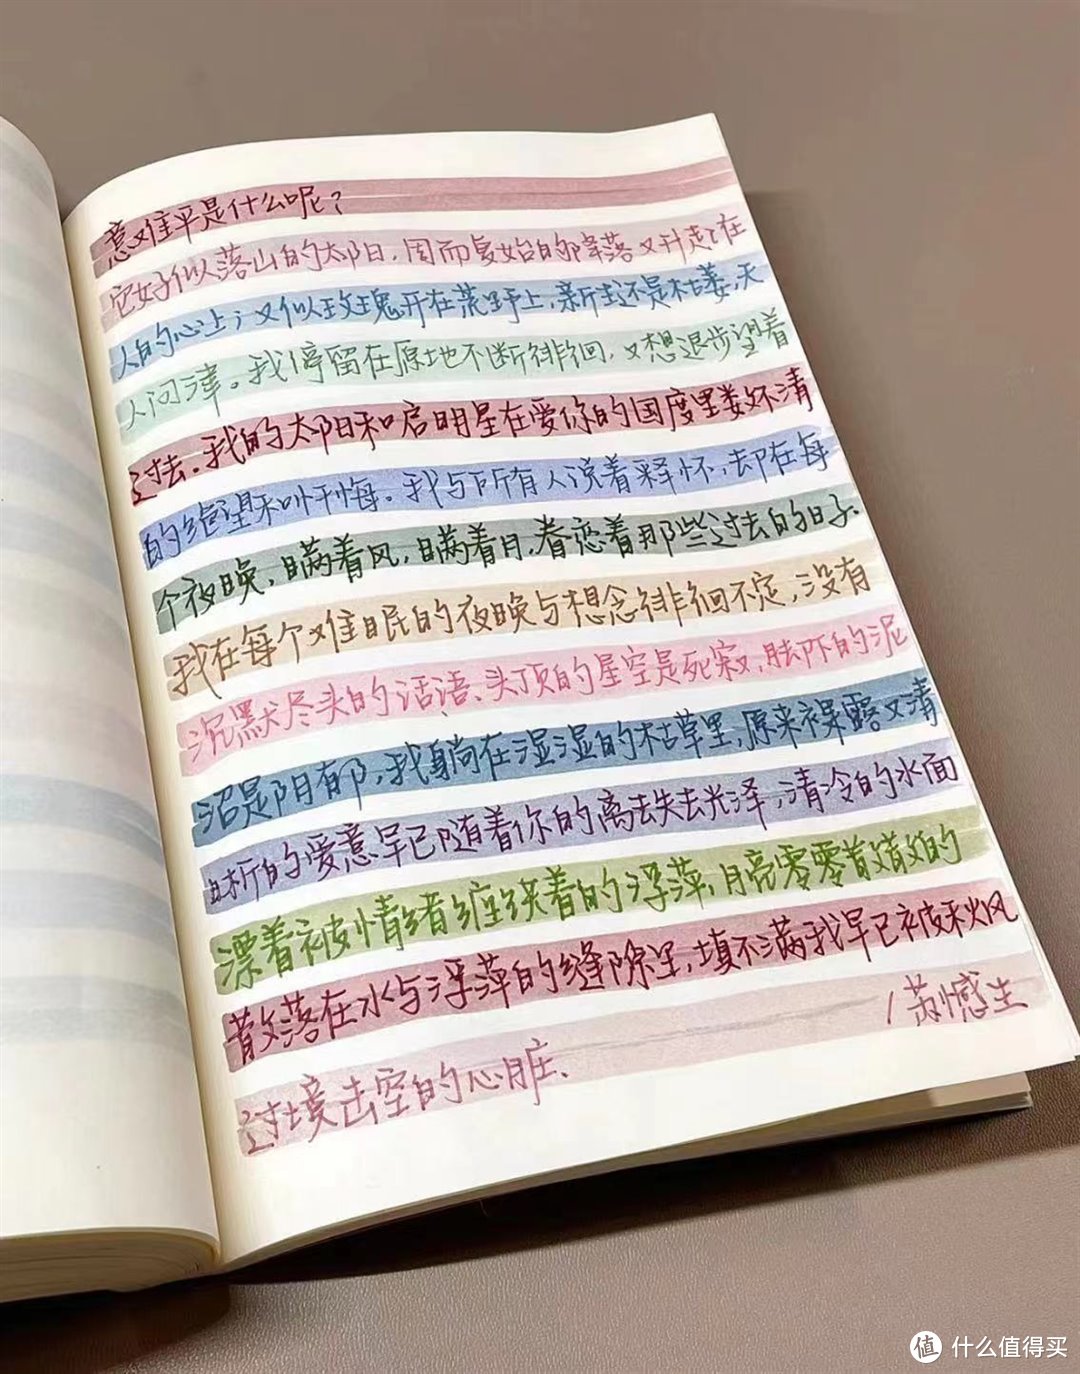 意难平是什么呢？
它好似落山的太阳，周而复始的降落又升起在
人的心上；又似玫瑰开在荒野上，新线还是枯萎，无
人问津。我停留在原地不断徘徊，又想退步望着
过去。我的太阳和启明星在爱你的国度里娄怀清
的绝望和忏悔。我与所有人说着释怀，却在每
个夜晚，瞒着风，瞒着月，眷恋着那些过去的日子.
我在每个难眠的夜晚与想念徘徊不定，没有
沉默尽头的话语、头顶的星空是死寂，脚下的泥
沼是阴郁，我躺在湿湿的枯草里，原来裸露又清
晰的爱意早已随着你的离去失去光泽，清冷的水面
漂着被情绪缠绕着的浮萍，月亮零零散散的
散落在水与浮萍的缝隙里，填不满我早已被秋风
过境击空的心脏、
/ 憾生